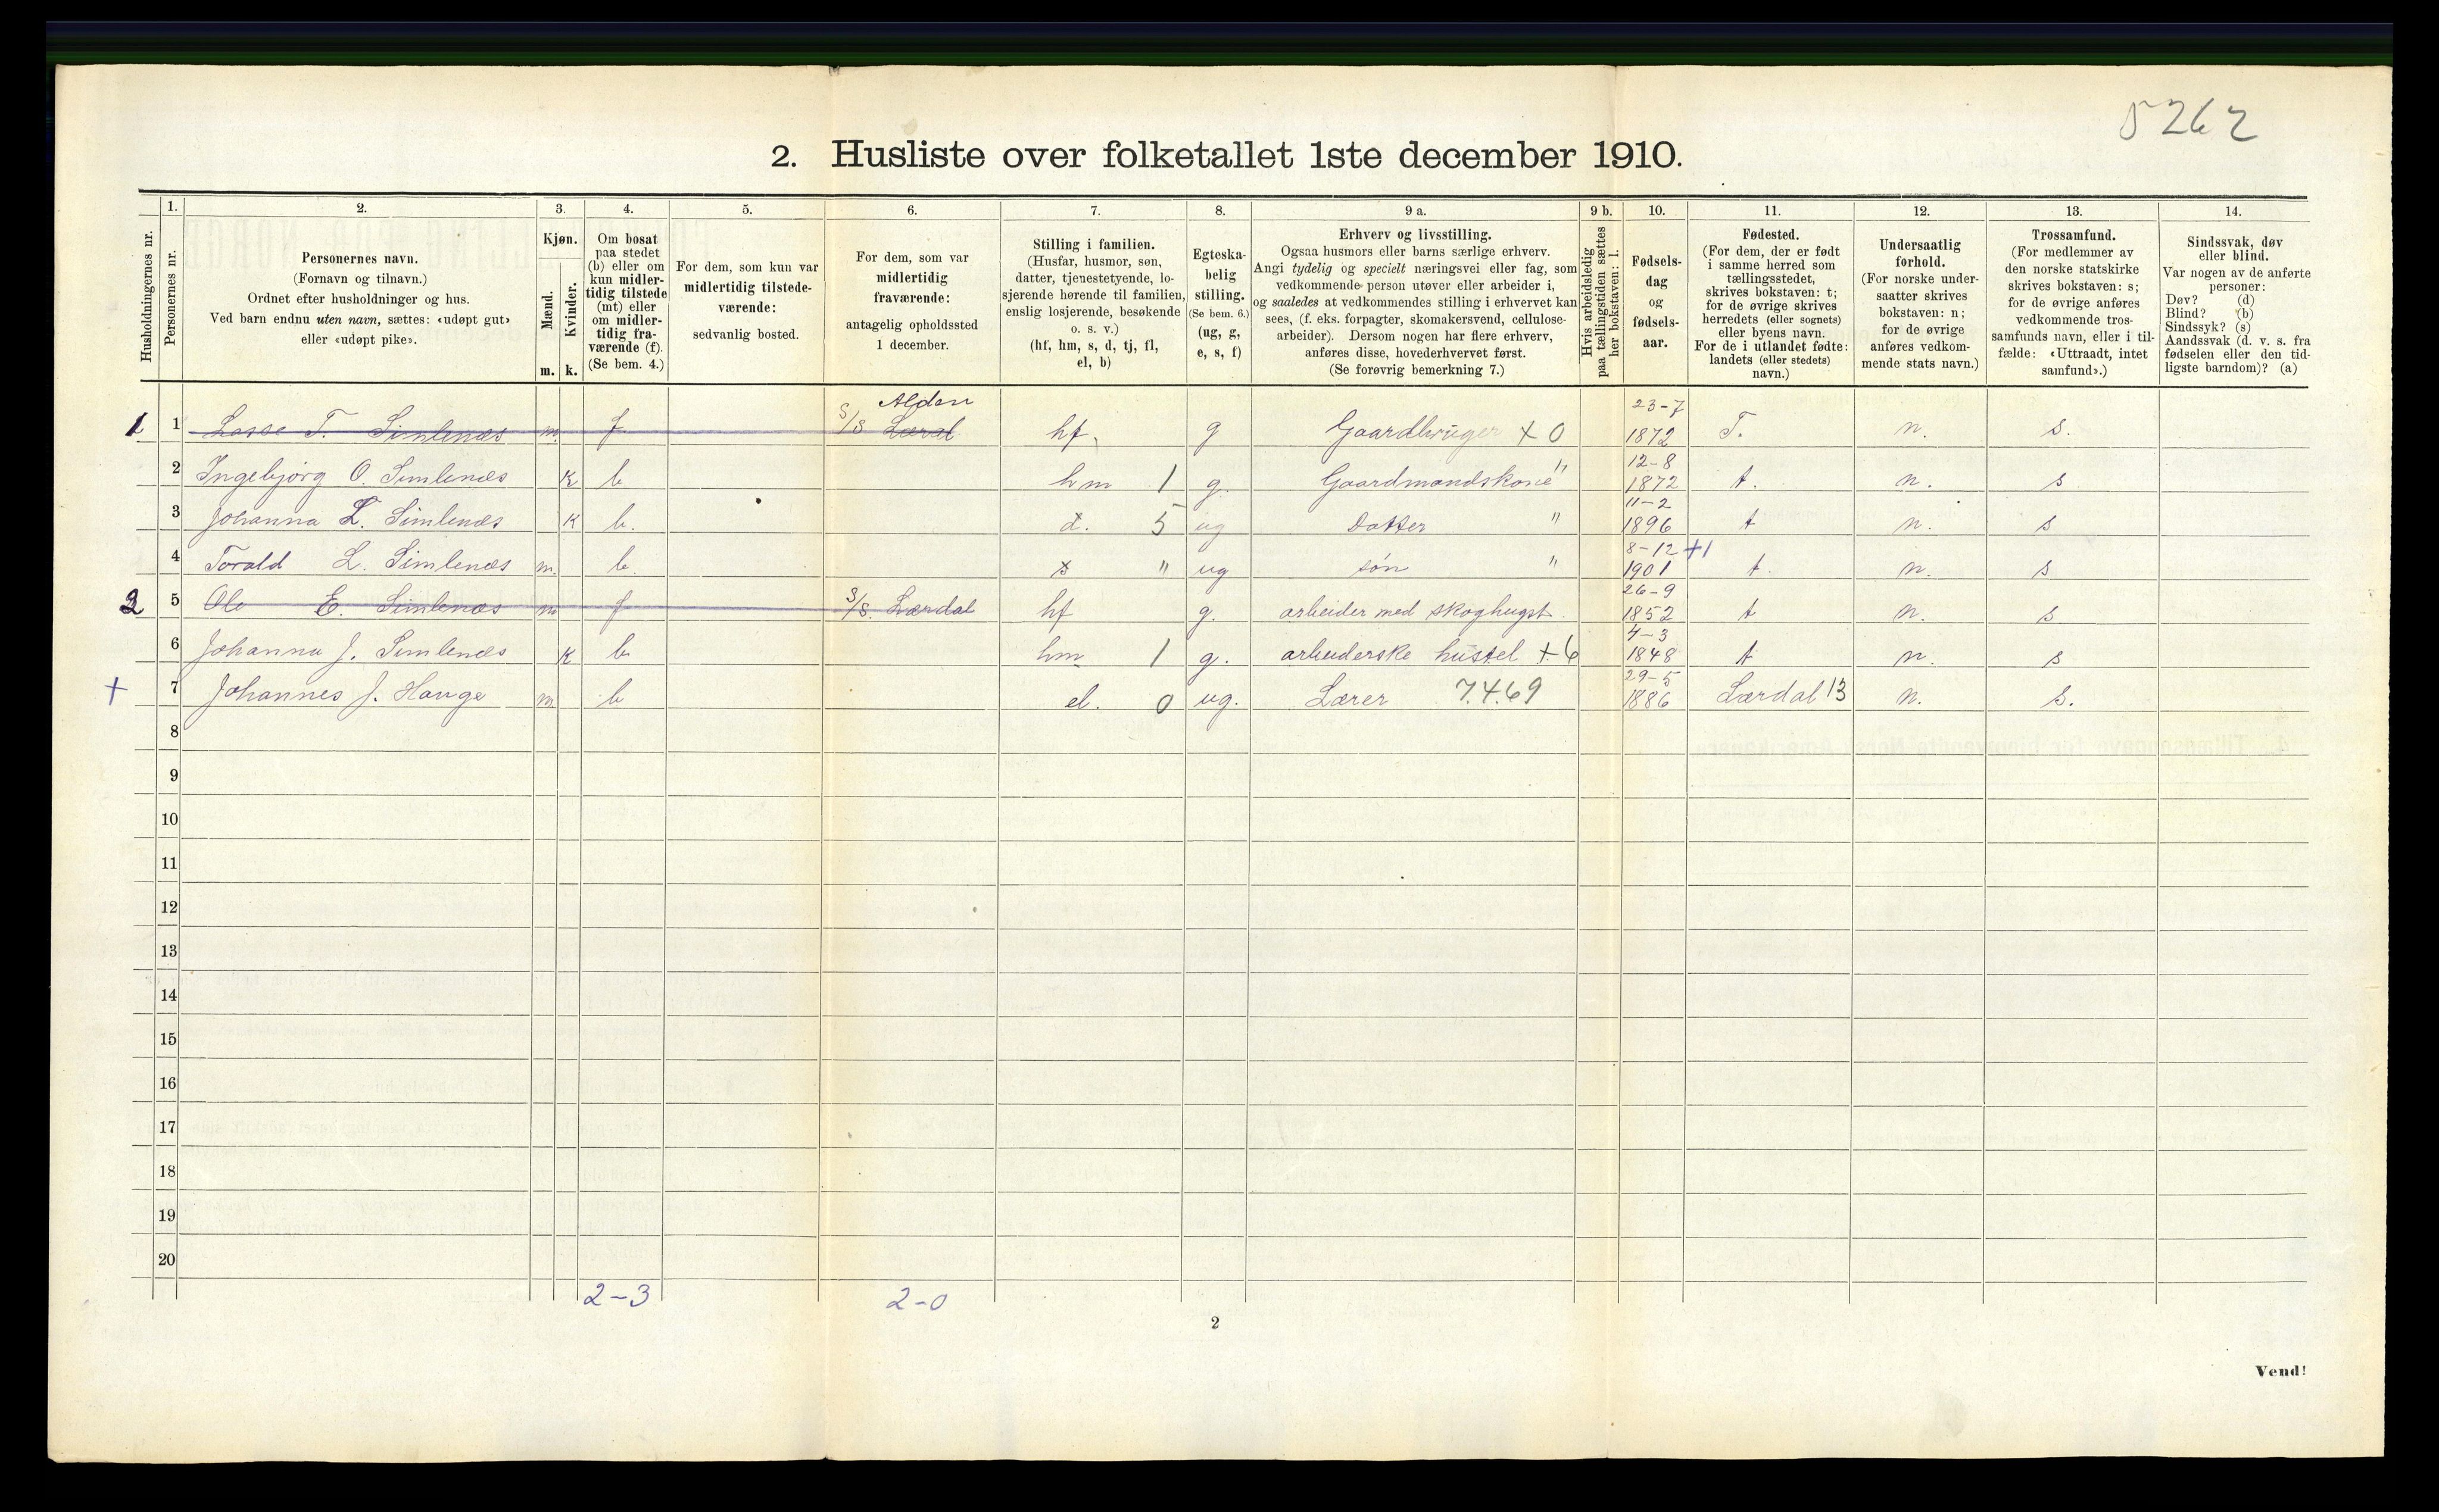 5262
2. Husliste over folketallet 1ste december 1910.
Husholdningernes nr.
1. Personernes nr.
2. Personernes navn.
(Fornavn og tilnavn.)
Ordnet efter husholdninger og hus.
Ved barn endnu uten navn, sættes: «udøpt gut»
eller «udøpt pike».
3. Kjøn.
Mænd. m.
Kvinder. k.
4. Om bosat
paa stedet
(b) eller om
kun midler-
tidig tilstede
(mt) eller
om midler-
tidig fra-
værende (f).
(Se bem. 4.)
5. For dem, som kun var
midlertidig tilstede-
værende:
sedvanlig bosted.
6. For dem, som var
midlertidig
fraværende:
antagelig opholdssted
1 december.
7. Stilling i familien.
(Husfar, husmor, søn,
datter, tjenestetyende, lo-
sjerende hørende til familien,
enslig losjerende, besøkende
o. s. v.)
(hf, hm, s, d, tj, fl,
el, b)
8. Egteska-
belig
stilling.
(Se bem. 6.)
(ug, g,
e, s, f)
9 a. Erhverv og livsstilling.
Ogsaa husmors eller barns særlige erhverv.
Angi tydelig og specielt næringsvei eller fag, som
vedkommende person utøver eller arbeider i,
og saaledes at vedkommendes stilling i erhvervet kan
sees, (f. eks. forpagter, skomakersvend, cellulose-
arbeider). Dersom nogen har flere erhverv,
anføres disse, hovederhvervet først.
(Se forøvrig bemerkning 7.)
9 b. Hvis arbeidsledig
paa tællingstiden sættes
her bokstaven: l.
10. Fødsels-
dag
og
fødsels-
aar.
11. Fødested.
(For dem, der er født
i samme herred som
tællingsstedet,
skrives bokstaven: t;
for de øvrige skrives
herredets (eller sognets)
eller byens navn.
For de i utlandet fødte:
landets (eller stedets)
navn.)
12. Undersaatlig
forhold.
(For norske under-
saatter skrives
bokstaven: n;
for de øvrige
anføres vedkom-
mende stats navn.)
13. Trossamfund.
(For medlemmer av
den norske statskirke
skrives bokstaven: s;
for de øvrige anføres
vedkommende tros-
samfunds navn, eller i til-
fælde: «Uttraadt, intet
samfund».)
14. Sindssvak, døv
eller blind.
Var nogen av de anførte
personer:
Døv? (d)
Blind? (b)
Sindssyk? (s)
Aandssvak (d. v. s. fra
fødselen eller den tid-
ligste barndom)? (a)
1 1 Lasse T. Simlenæs m. f S/S Alden Læral hf. g Gaardbruger x 0 23-7 1872 T. n. s.
2 Ingebjørg O. Simlenæs K b hm 1 g. Gaardmandskone " 12-8 1872 t. n. s
3 Johanna L. Simlenæs K b. d. 5 ug Datter " 11-2 1896 t n. s
4 Torald L. Simlenæs m. b s " ug søn " 8-12 +1 1901 t. n. s
2 5 Ole E. Simlenæs m f S/S. Lærdal hf g. arbeider med skoghugst. 26-9 1852 t n. s
6 Johanna J. Simlenæs K b hm 1 g. arbeiderske hustel + 6 4-3 1848 t n. s
+ 7 Johannes J. Hauge m b el. 0 ug. Lærer 7.4.69 29-5 1886 Lærdal 13 n. s.
8
9
10
11
12
13
14
15
16
17
18
19
20
2-3 2-0
2
Vend!